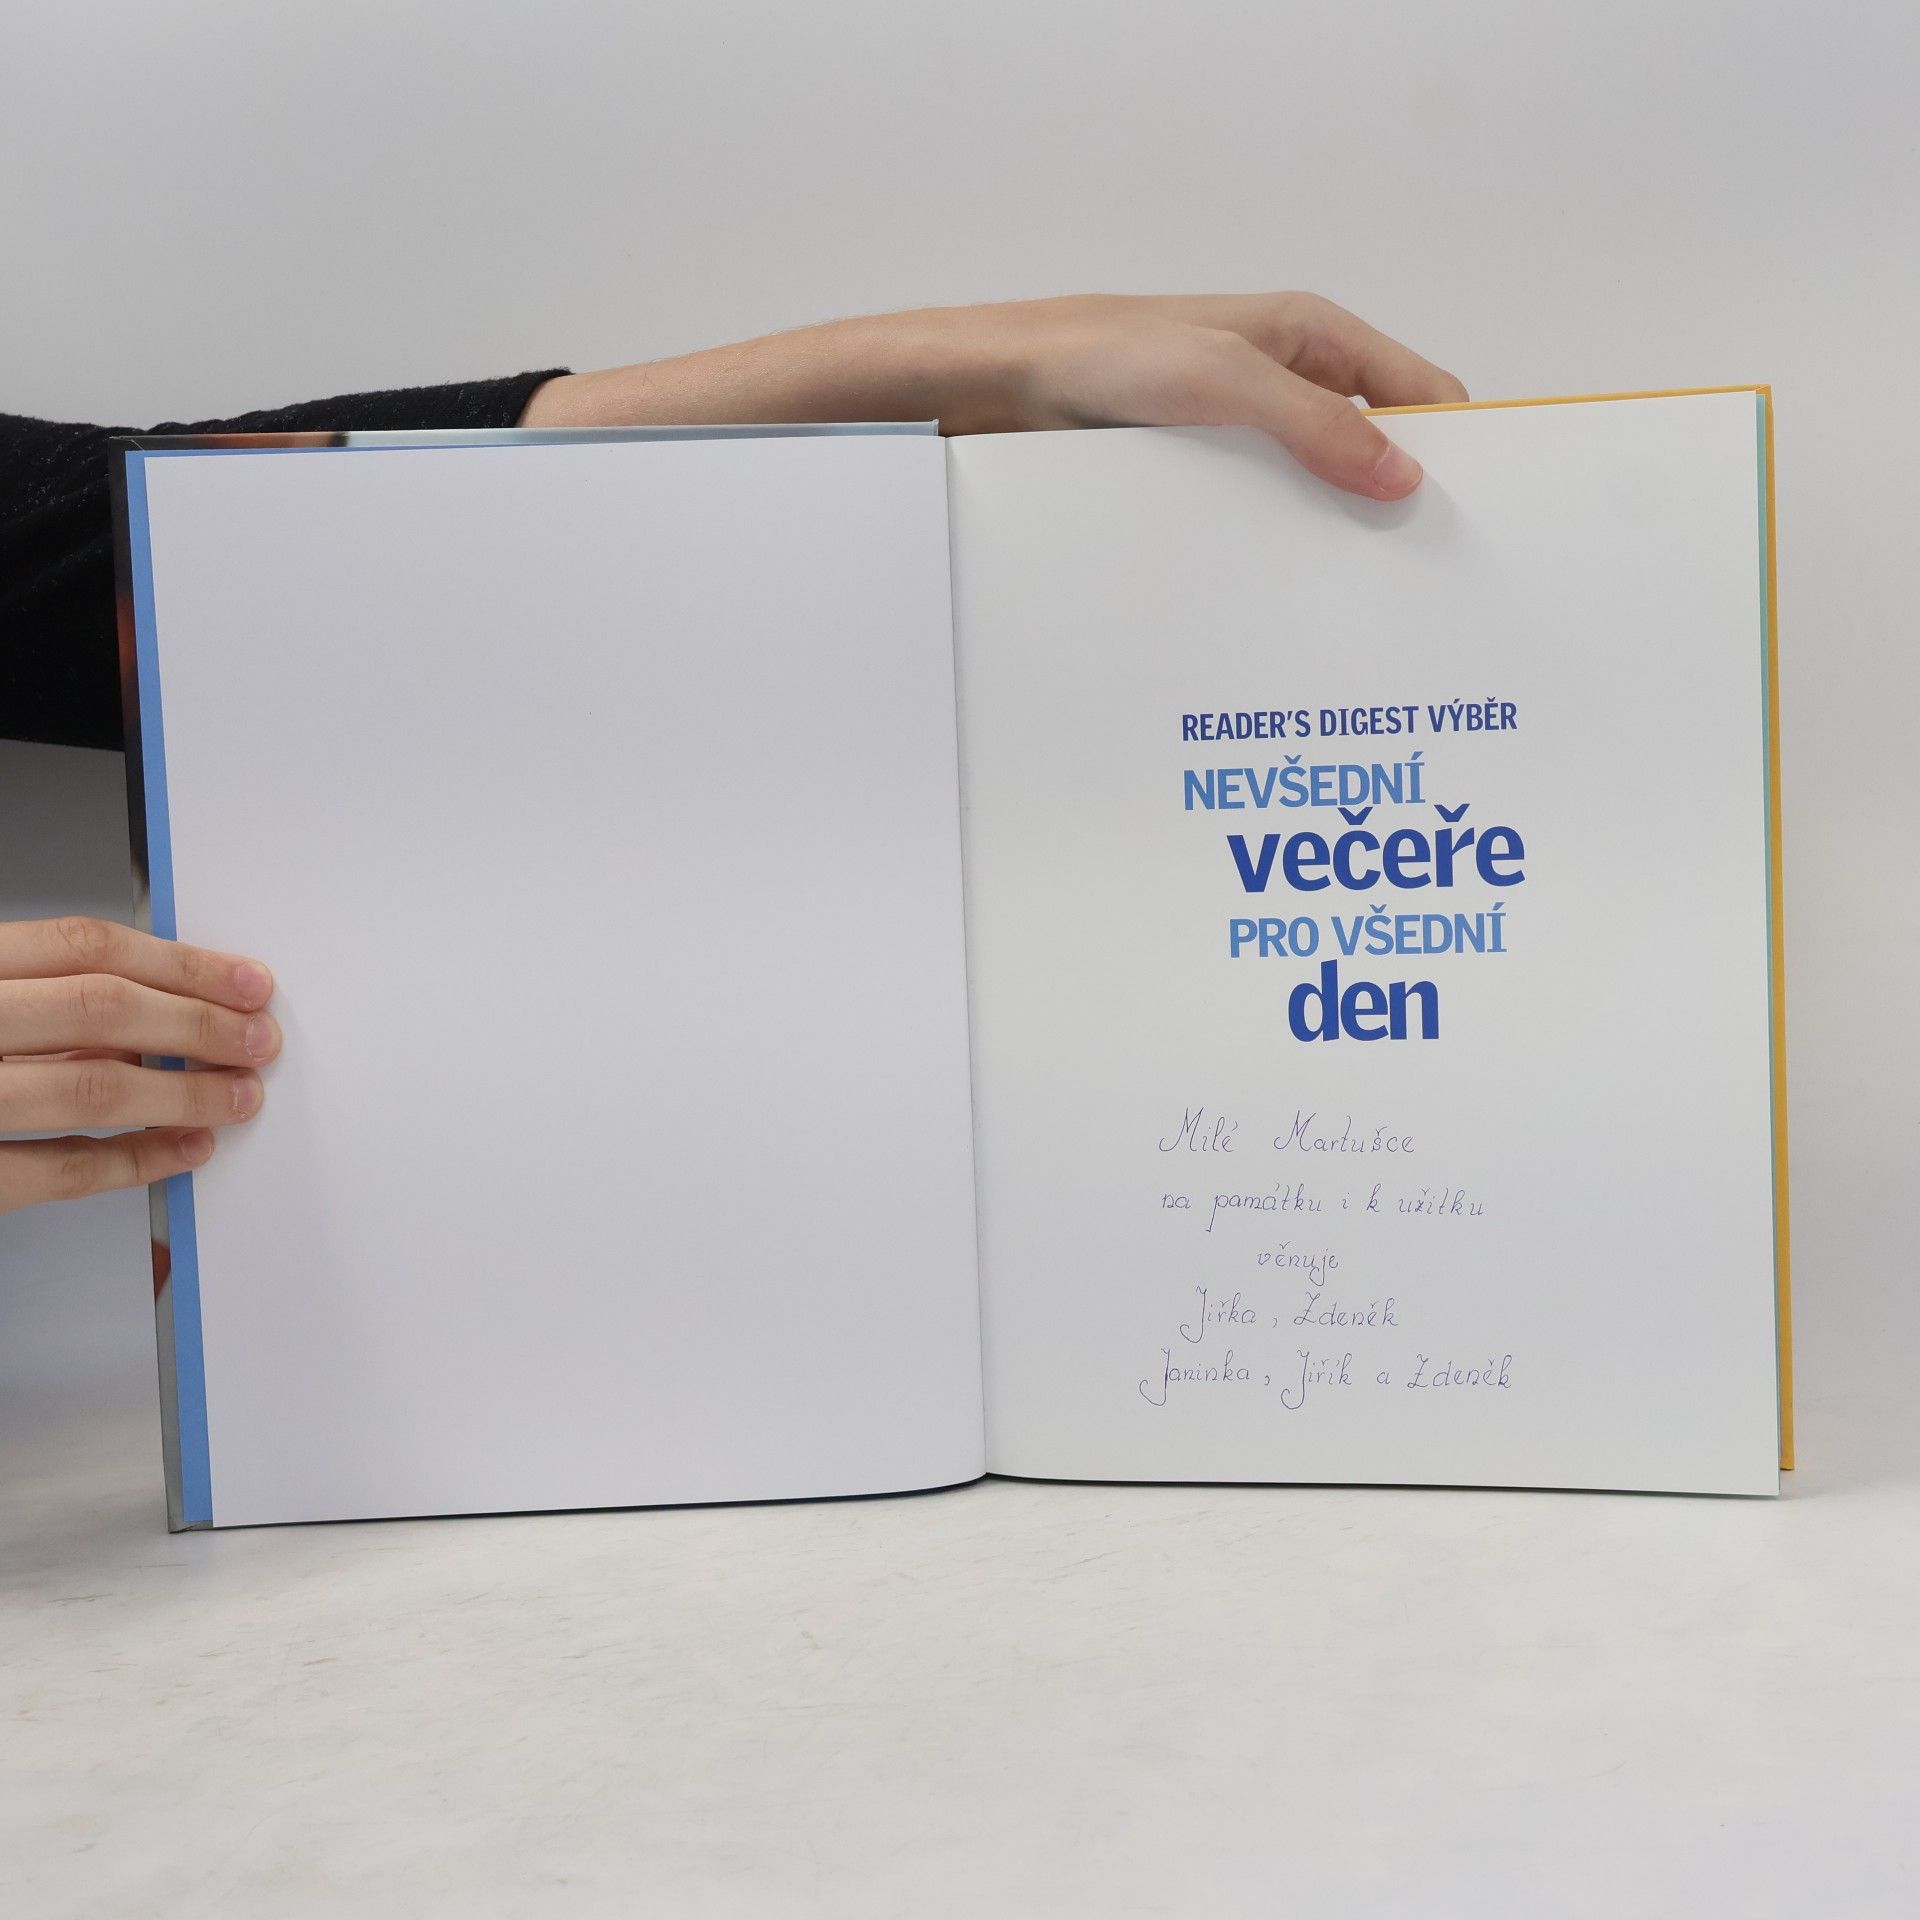 READER'S DIGEST VÝBĚR
NEVŠEDNÍ
večeře
PRO VŠEDNÍ
den
Milé Martušce
na památku i k užitku
věnuje
Jiřka, Zdeněk
Janinka, Jiřík a Zdeněk